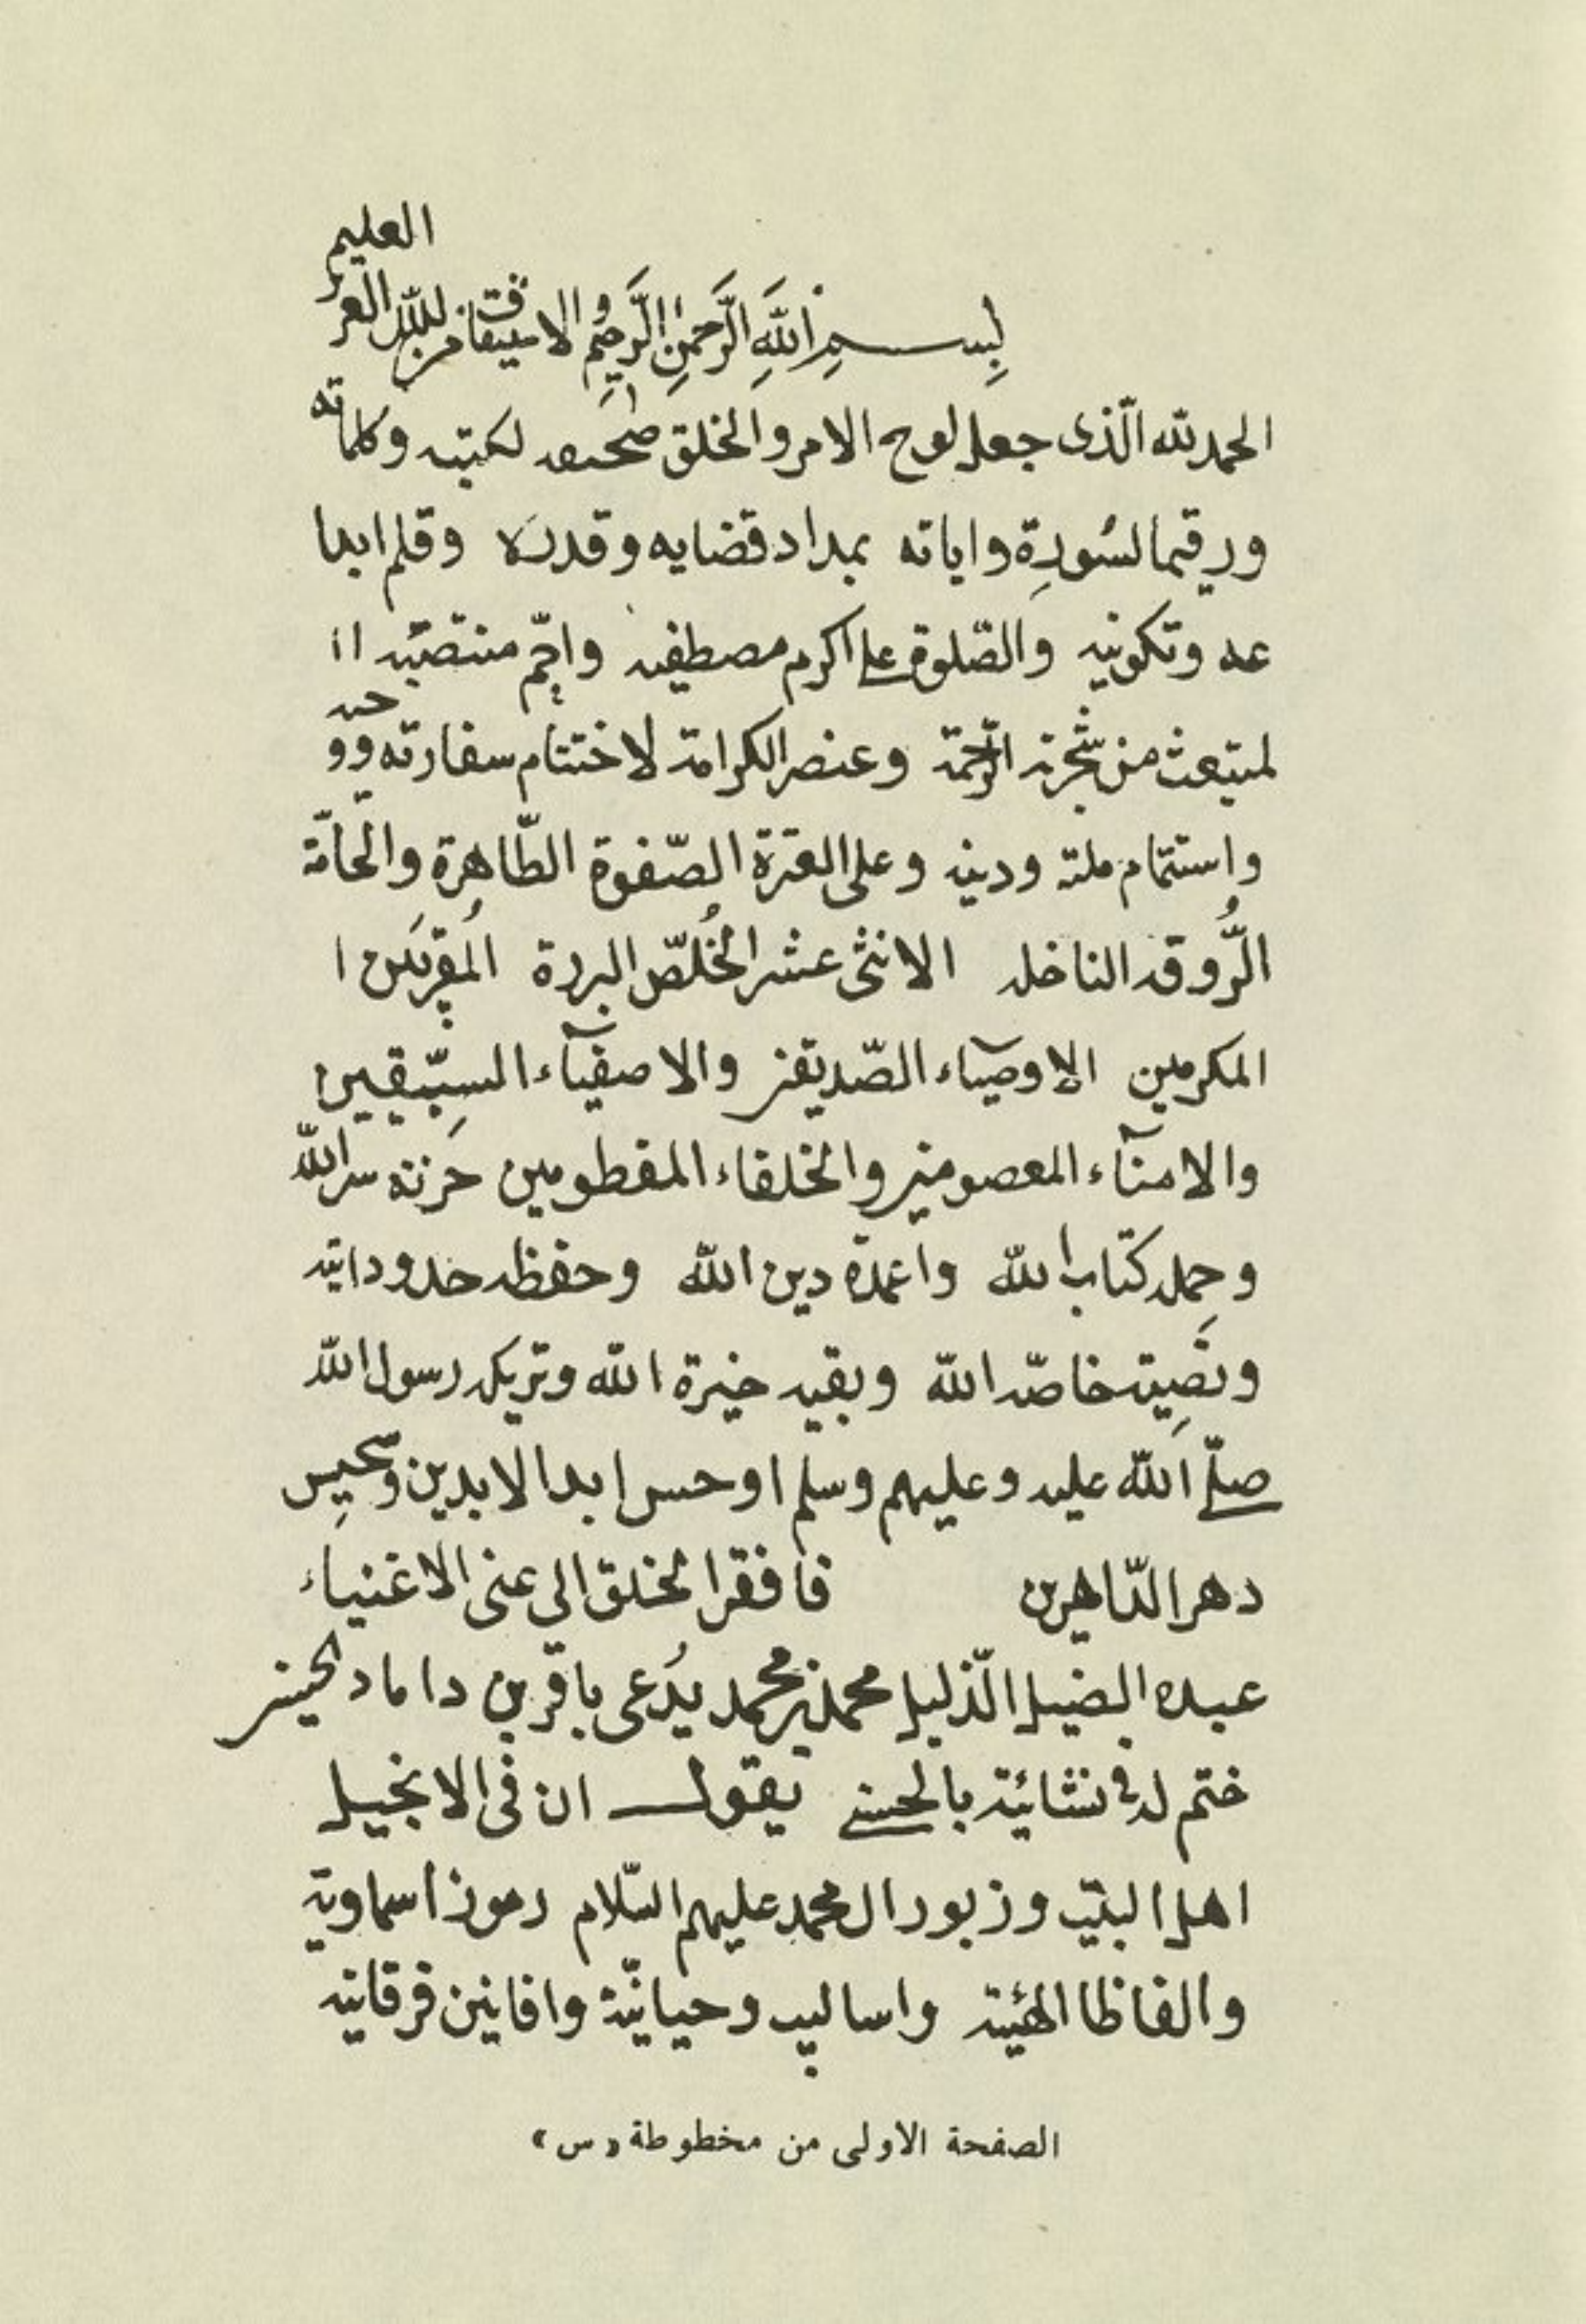 العليم
بِسمِ اللهِ الرَّحمنِ الرَّحِيمِ والاستيفاق من لله العز
الحمد لله الّذى جعل لوح الامر والخلق صحيفه لكتبه وكلماته
ورقيما لسُورِة واياته بمداد قضايه وقدره وقلم ابدا
عه وتكوينه والصّلوة على اكرم مصطفيه واتمّ منتصبيه ا
لمنبعث من شجرة الرّحمة وعنصر الكرامة لاختتام سفارته ووحيه
واستتمام ملته ودينه وعلى العترة الصّفوة الطّاهرة والحامّة
الرُّوقه الناخله الاثنى عشر الخُلّص البررة المُقربَين ا
المكرمين الاوصيآء الصّديقين والاصفيآء السبّقين
والامنآء المعصومين والخلفاء المفطومين خزنة سر الله
وحملة كتاب الله واعمدة دين الله وحفظه حدود
ونصِية خاصّه الله وبقيه خيرة الله وتريكه رسول الله
صلّى الله عليه وعليهم وسلم ابد الابدين
دهر الدّاهرين فافقر الخلق الى غنى الاغنياء
عبده الضيل الذّليل محمد بن محمد يُدعى باقر بن داماد الحسينى
ختم له فى نشائية بالحسنى يقول ان فى الانجيل
اهل البيت وزبور ال محمد عليهم السّلام رموزا سماوية
والفاظا الهئية واساليب وحيانيّة وافانين فرقانية
الصفحة الاولى من مخطوطة «س»